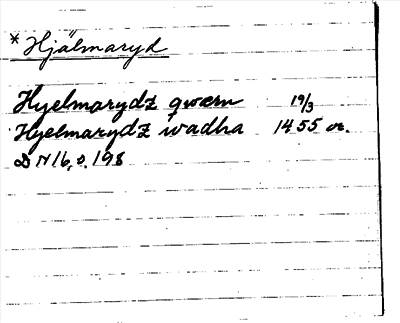 * Hjälmaryd
Hyelmarydz qwærn 19/3
Hyelmarydz wadha 1455 or.
DN16, s. 198